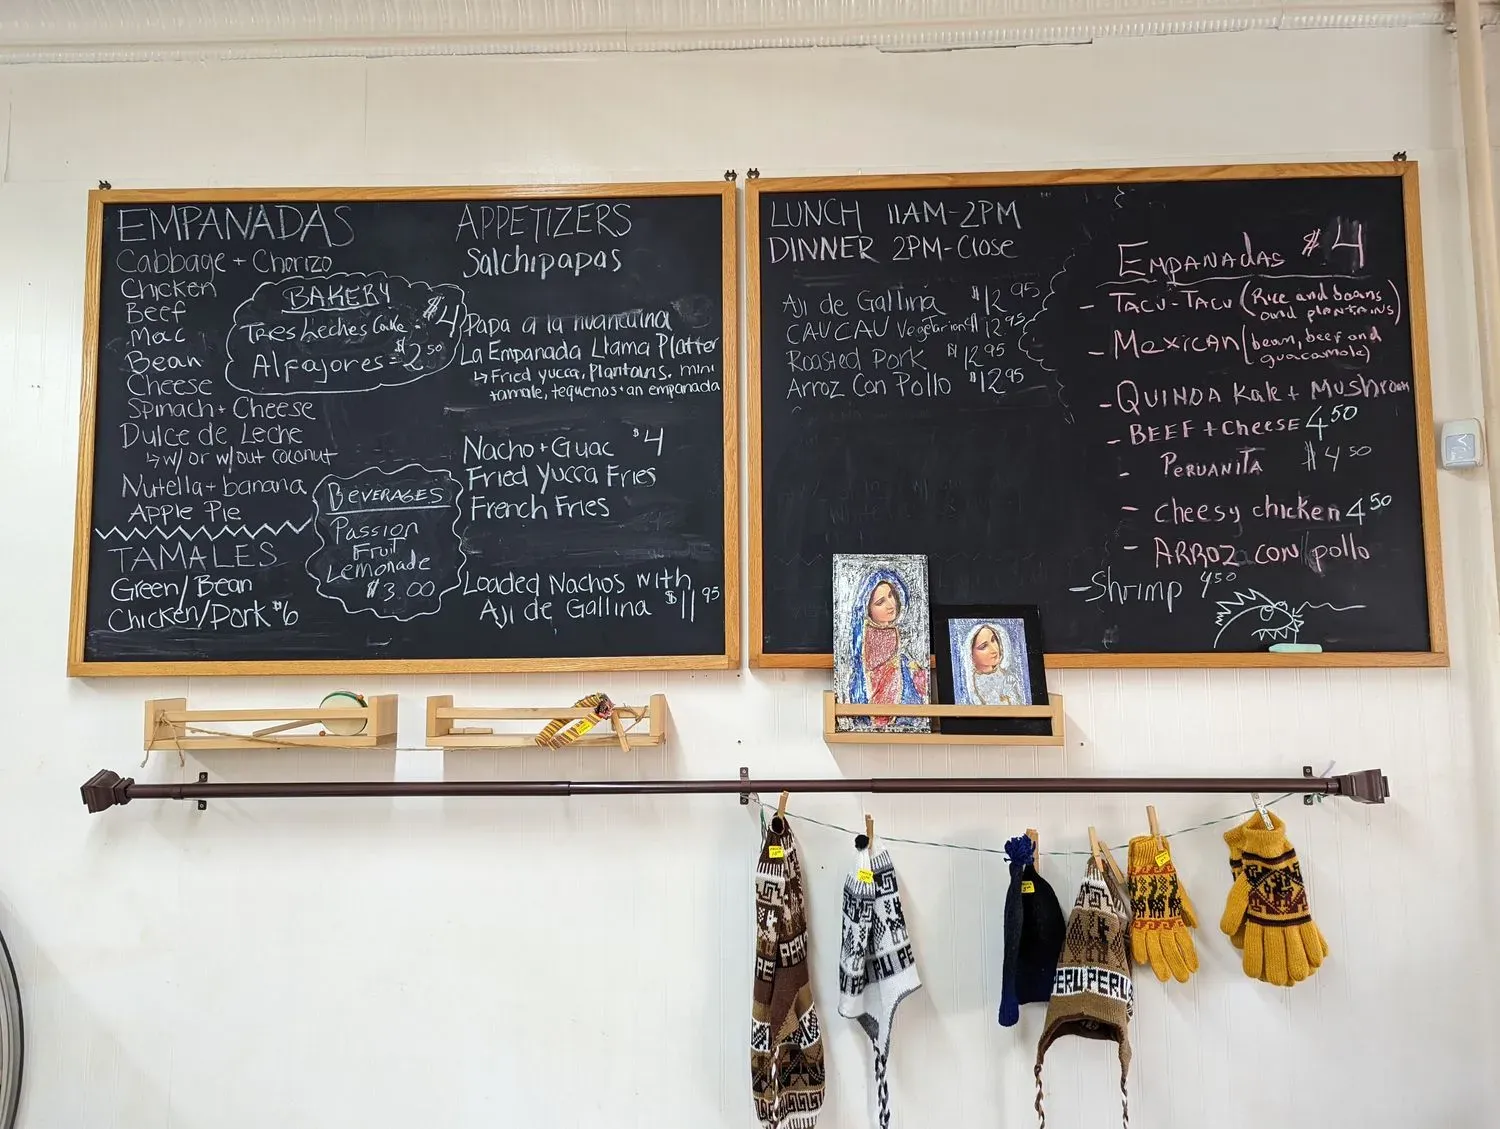 EMPANADAS
Cabbage + Chorizo
Chicken
Beef
Mac
Bean
Cheese
Spinach + Cheese
Dulce de Leche
↳ w/ or w/out coconut
Nutella + banana
Apple Pie
TAMALES
Green/Bean
Chicken/Pork $6
BAKERY
Tres Leches Cake - $4
Alfajores = $2.50
BEVERAGES
Passion
Fruit
Lemonade
$3.00
APPETIZERS
Salchipapas
Papa a la huancaina
La Empanada Llama Platter
↳ Fried yucca, Plantains, mini
tamale, tequenos + an empanada
Nacho + Guac $4
Fried Yucca Fries
French Fries
Loaded Nachos with
Aji de Gallina $11.95
LUNCH 11AM-2PM
DINNER 2PM-Close
Aji de Gallina $12.95
CAU CAU Vegetarian $12.95
Roasted Pork $12.95
Arroz Con Pollo $12.95
EMPANADAS $4
- TACU-TACU (Rice and beans
and plantains)
- MEXICAN (bean, beef and
guacamole)
- QUINOA Kale + Mushroom
- BEEF + Cheese 4.50
- PERUANITA $4.50
- cheesy chicken 4.50
- ARROZ CON pollo
- Shrimp 4.50
PERU
PE
PERU PE
PERU PERU